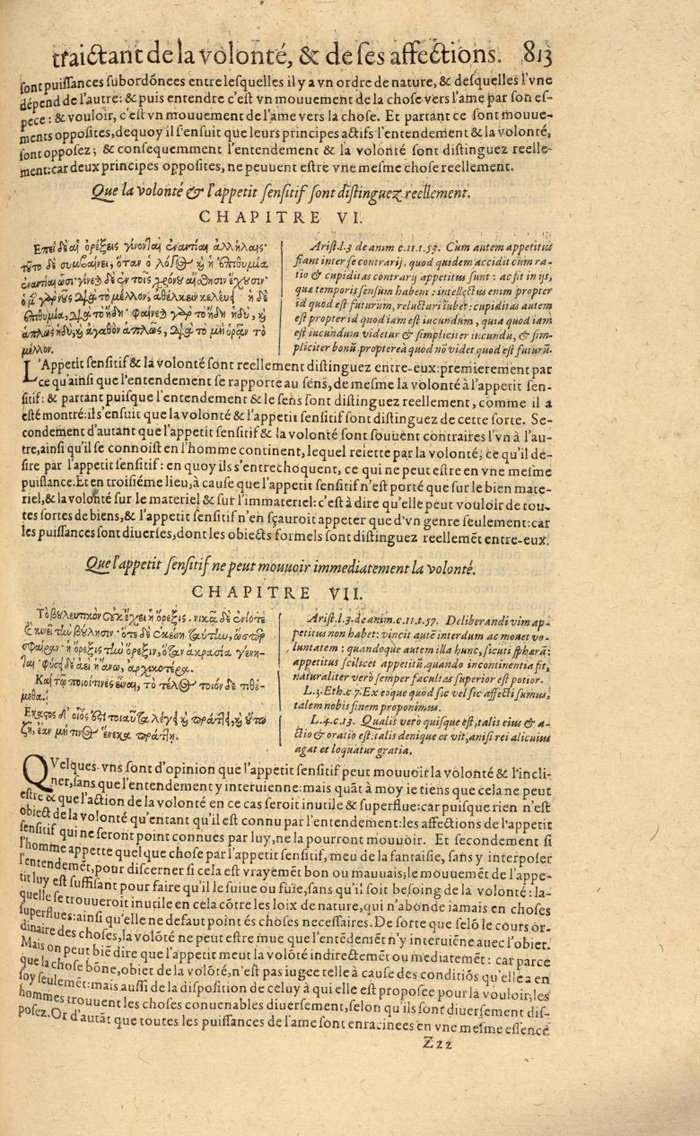 traictant de la volonté, & de ses affections. 813
sont puissances subordōnees entre lesquelles il y a vn ordre de nature, & desquelles l'vne
dépend de l'autre: & puis entendre c'est vn mouuement de la chose vers l'ame par son es-
pece: & vouloir, c'est vn mouuement de l'ame vers la chose. Et partant ce sont mouue-
ments opposites, dequoy il s'ensuit que leurs principes actifs l'entendement & la volonté,
sont opposez; & consequemment l'entendement & la volonté sont distinguez reelle-
ment: car deux principes opposites, ne peuuent estre vne mesme chose reellement.
Que la volonté & l'appetit sensitif sont distinguez reellement.
CHAPITRE VI.
Ἐπεὶ δὲ αἱ ὀρέξεις γίνονται ἐναντίαι ἀλλήλαις·
τῦτο δὲ συμβαίνει, ὅταν ὁ λόγος κ̀ ἡ ἐπιθυμία
ἐναντίαι ὦσι· γίνε δὲ ἐν τοῖς χρόνου αἴσθησιν ἔχουσιν·
ὁ μ̀ γὰρ νῦς διὰ τὸ μέλλον, ἀθέλκειν κελεύει· ἡ δὲ
ἐπιθυμία, διὰ τὸ ἤδη· φαίνε γὰρ τὸ ἤδη ἡδύ, κ̀
ἁπλῶς ἡδύ, κ̀ ἀγαθὸν ἁπλῶς, διὰ τὸ μὴ ὁρᾶν τὸ
μέλλον.
Arist. l. 3 de anim c. 11. t. 53. Cùm autem appetitus
fiant inter se contrarij, quod quidem accidit cùm ra-
tio & cupiditas contrarij appetitus sunt: ac fit in ijs,
que temporis sensum habent: intellectus enim propter
id quod est futurum, reluctari iubet: cupiditas autem
est propter id quod iam est iucundum, quia quod iam
est iucundum videtur & simpliciter iucundū, & sim-
pliciter bonū propterea quod nō videt quod est futurū.
L'Appetit sensitif & la volonté sont reellement distinguez entre-eux: premierement par
ce qu'ainsi que l'entendement se rapporte au sens, de mesme la volonté à l'appetit sen-
sitif: & partant puisque l'entendement & le sens sont distinguez reellement, comme il a
esté montré: ils s'ensuit que la volonté & l'appetit sensitif sont distinguez de cette sorte. Se-
condement d'autant que l'appetit sensitif & la volonté sont souuent contraires l'vn à l'au-
tre, ainsi qu'il se connoist en l'homme continent, lequel reiette par la volonté, ce qu'il de-
sire par l'appetit sensitif: en quoy ils s'entrechoquent, ce qui ne peut estre en vne mesme
puissance. Et en troisiéme lieu, à cause que l'appetit sensitif n'est porté que sur le bien mate-
riel, & la volonté sur le materiel & sur l'immateriel: c'est à dire qu'elle peut vouloir de tou-
tes sortes de biens, & l'appetit sensitif n'en sçauroit appeter que d'vn genre seulement: car
les puissances sont diuerses, dont les obiects formels sont distinguez reellemēt entre-eux.
Que l'appetit sensitif ne peut mouuoir immediatement la volonté.
CHAPITRE VII.
Τὸ βουλευτικὸν οὐκ ἔχει ἡ ὄρεξις. νικᾷ δὲ ἐνίοτε
κ̀ κινεῖ τὴν βύλησιν· ὁτὲ δὲ ἐκείνη ταύτην, ὥσπερ
σφαῖραν· ἡ ὄρεξις τὴν ὄρεξιν, ὅταν ἀκρασία γένη-
ται· φύσει δὲ ἀεὶ ἡ ἄνω, ἀρχικοτέρα.
Καὶ τῷ ποιοί τινες εἶναι, τὸ τέλος τοιόνδε τιθέ-
μεθα.
Εκαςος δ' οἷός ἐςι τοιαῦτα λέγει κ̀ πράττει, κ̀ ὕτω
ζῇ, ἐὰν μή τινος ἕνεκα πράττῃ.
Arist. l. 3. de anim. c. 11. t. 57. Deliberandi vim ap-
petitus non habet: vincit autē interdum ac mouet vo-
luntatem: quandoque autem illa hunc, sicuti spharā:
appetitus scilicet appetitū, quando incontinentia fit,
naturaliter verò semper facultas superior est potior.
L. 3. Eth. c 7. Ex eoque quod sic vel sic affecti sumus,
talem nobis finem proponimus.
L. 4. c. 13. Qualis verò quisque est, talis eius & a-
ctio & oratio est: talis denique et vit, anisi rei alicuius
agat et loquatur gratia.
QVelques-vns sont d'opinion que l'appetit sensitif peut mouuoir la volonté & l'incli-
ner, sans que l'entendement y interuienne: mais quāt à moy ie tiens que cela ne peut
estre & que l'action de la volonté en ce cas seroit inutile & superflue: car puisque rien n'est
obiect de la volonté qu'entant qu'il est connu par l'entendement: les affections de l'appetit
sensitif qui ne seront point connues par luy, ne la pourront mouuoir. Et secondement si
l'homme appette quelque chose par l'appetit sensitif, meu de la fantaisie, sans y interposer
l'entendemēt, pour discerner si cela est vrayemēt bon ou mauuais; le mouuemēt de l'appe-
tit luy est suffisant pour faire qu'il le suiue ou fuïe, sans qu'il soit besoing de la volonté: la-
quelle se trouueroit inutile en cela cōtre les loix de nature, qui n'abonde iamais en choses
superflues: ainsi qu'elle ne defaut point és choses necessaires. De sorte que selō le cours or-
dinaire des choses, la volōté ne peut estre mue que l'entēdemēt n'y interuiēne auec l'obiet.
Mais on peut biē dire que l'appetit meut la volōté indirectemēt ou mediatemēt: car parce
que la chose bōne, obiet de la volōté, n'est pas iugee telle à cause des conditiōs qu'elle a en
soy seulemēt: mais aussi de la disposition de celuy à qui elle est proposee pour la vouloir; les
hommes trouuent les choses conuenables diuersement, selon qu'ils sont diuersement dis-
posez. Or d'autāt que toutes les puissances de l'ame sont enracinees en vne mesme essence
Zzz